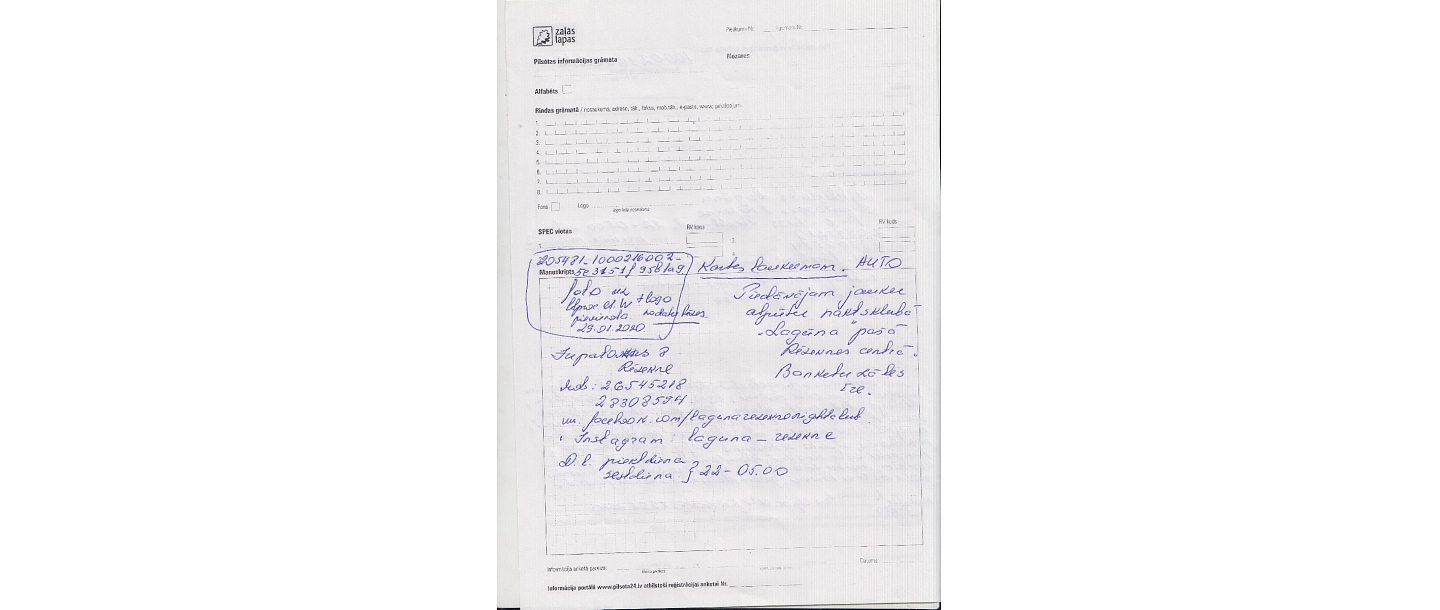 zaļās
lapas
Pilsētas informācijas grāmata
Nozares
Alfabēts
Rindas grāmatā / nosaukums, adrese, tālr., fakss, mob.tālr., e-pasts, www, pielikumam
1.
2.
3.
4.
5.
6.
7.
8.
Fons
Logo
SPEC vietas
RV kods
RV kods
1.
3.
205481-1000216002-
Manuskripts
Kartes laukumam. AUTO
foto un
+ logo
pievienota.
29.01.2020.
Piedāvājam jauku
atpūtu naktsklubā
"Lagūna" pašā
Rēzeknes centrā.
Banketu zāles
īre.
8
Rēzekne
mob: 26545218
28308594
facebook.com/lagunarezeknenightclub
Instagram: laguna_rezekne
D.l. piektdiena
sestdiena } 22-05.00
Informācija anketā pareiza:
Datums:
Informācija portālā www.pilseta24.lv atbilstoši reģistrācijas anketai Nr.